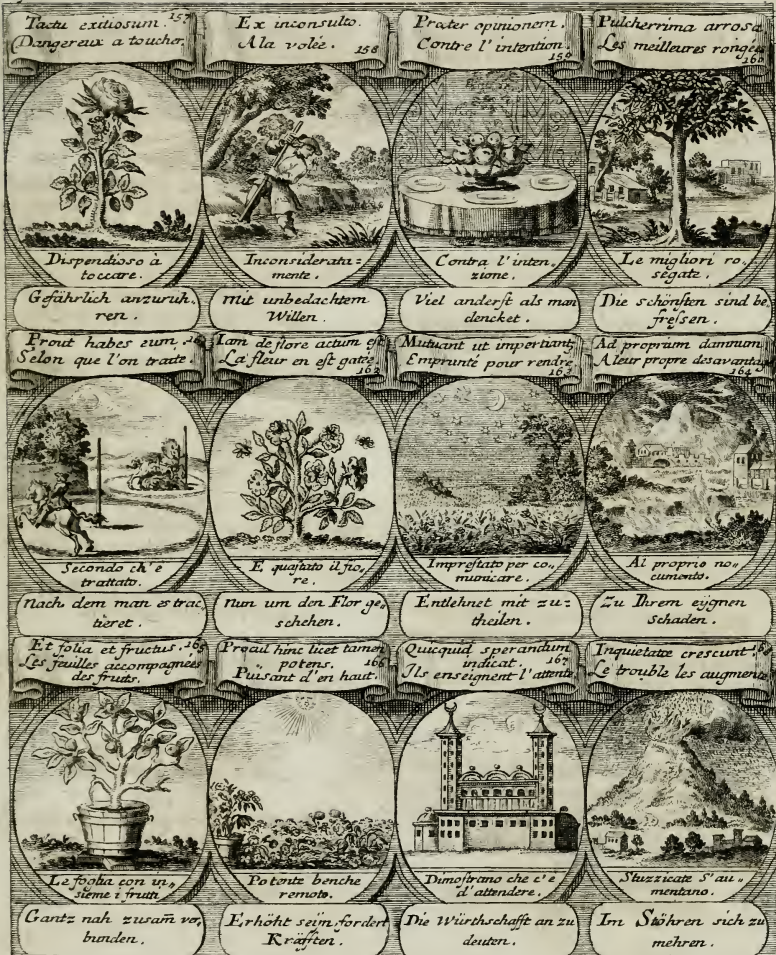 Tactu exitiosum. 157
Dangereux a toucher.
Dispendioso à
toccare.
Gefährlich anzurüh-
ren.
Ex inconsulto.
A la volée. 158
Inconsiderata=
mente.
mit unbedachtem
Willen.
Præter opinionem.
Contre l'intention.
159
Contra l'inten,
zione.
Viel anderst als man
dencket.
Pulcherrima arrosa
Les meilleures rongées
160
Le migliori ro,
segate.
Die schönsten sind be,
fressen.
Prout habes eum.
Selon que l'on traite.
Secondo ch'e
trattato.
nach dem man es trac,
tieret.
Iam de flore actum est
La fleur en est gatée.
162
E guastato il fio,
re.
nun um den Flor ge,
schehen.
Mutuant ut impertiant
Emprunté pour rendre
163
Imprestato per co,
municare.
Entlehnet mit zu=
theilen.
Ad proprium damnum
A leur propre desavantag
164
Al proprio no,
cumento.
Zu Ihrem eygnen
Schaden.
Et folia et fructus. 165
Les feuilles accompagnées
des fruits.
Le foglia con in,,
sieme i frutti
Gantz nah zusam̄ ver,
bunden.
Procul hinc licet tamen
potens. 166
Puisant d'en haut.
Potente benche
remoto.
Erhöht sein fordert
Kräfften.
Quicquid sperandum
indicat. 167
Ils enseignent l'attente
Dimostrano che c'e
d'attendere.
Die Würthschafft an zu
deuten.
Inquietatæ crescunt
Le trouble les augmente
Stuzzicate s'au,,
mentano.
Im Stöhren sich zu
mehren.